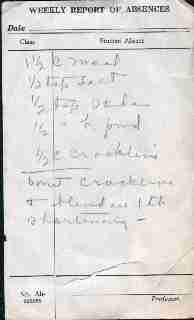 WEEKLY REPORT OF ABSENCES
Date
Class Student Absent
1½ C meal
½ tsp salt
½ tsp soda
½
½ C Cracklins
Cracklins
+ blend in 1 tb
shortening -
No. Absences
Professor.